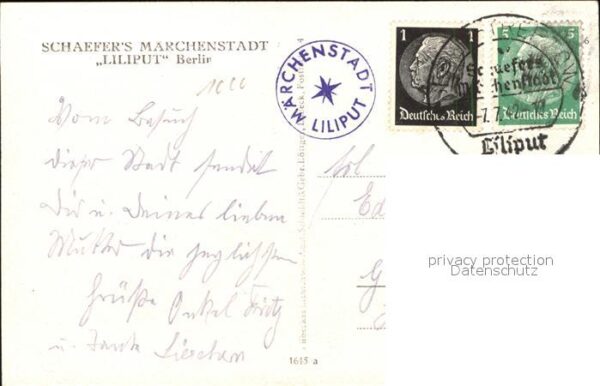 SCHAEFER'S MÄRCHENSTADT
„LILIPUT“ Berlin
MÄRCHENSTADT
LILIPUT
1
Deutsches Reich
5
5
Deutsches Reich
Schaefers
Märchenstadt
-7.7.
Liliput
Vom Besuch
dieser Stadt sendet
Dir u. Deiner lieben
Mutter die herzlichsten
Grüße Onkel Fritz
u. Tante Lieschen
Frl.
1615 a
privacy protection
Datenschutz